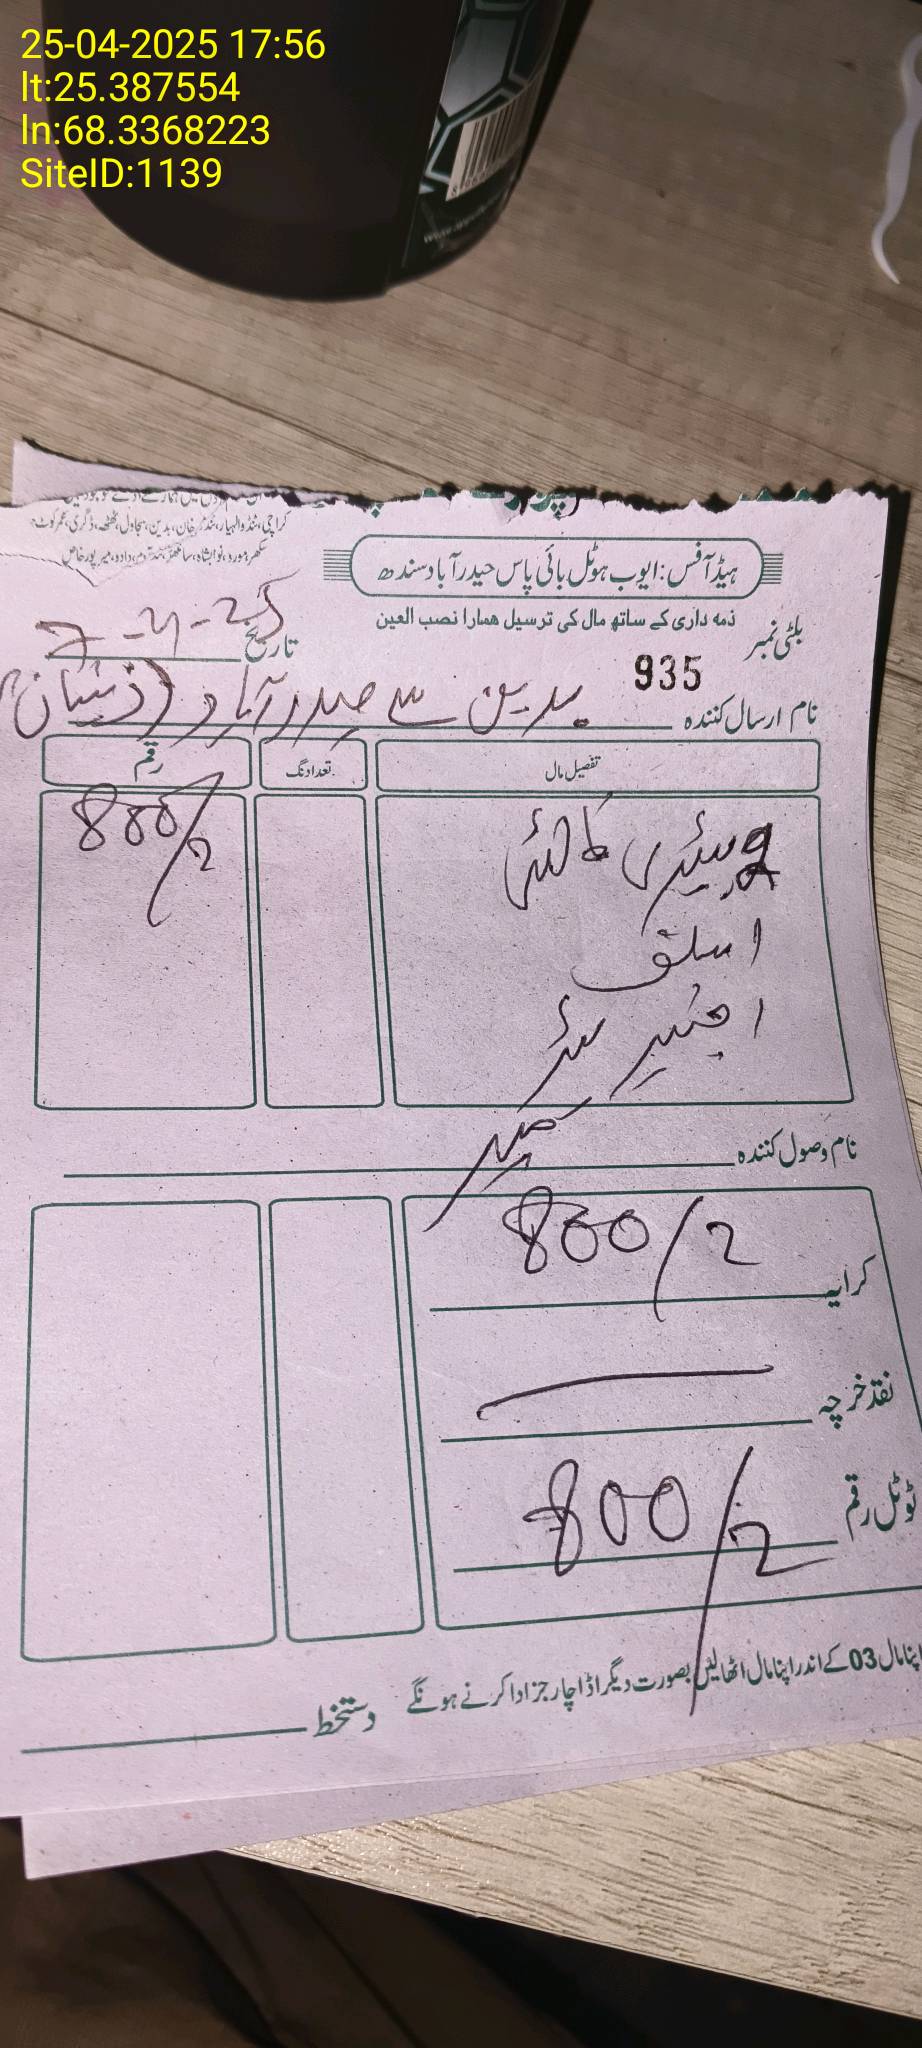 25-04-2025 17:56
lt:25.387554
ln:68.3368223
SiteID:1139
کراچی، ٹنڈوالہیار، ٹنڈو خان، بدین، سجاول، ٹھٹھہ، ڈگری، عمرکوٹ،
سکھر، مورو، نوابشاہ، سانگھڑ، ٹنڈوآدم، دادو، میرپورخاص
ہیڈ آفس: ایوب ہوٹل بائی پاس حیدرآباد سندھ
ذمہ داری کے ساتھ مال کی ترسیل ہمارا نصب العین
بلٹی نمبر 935 تاریخ 7-4-25
نام ارسال کنندہ بدین سے حیدرآباد (ذیشان)
تفصیل مال تعداد نگ رقم
2 بیٹری 800/2
1 سلف
1
نام وصول کنندہ
کرایہ 800/2
نقد خرچہ
ٹوٹل رقم 800/2
اپنا مال 03 کے اندر اپنا مال اٹھالیں بصورت دیگر اڈا چارجز ادا کرنے ہونگے
دستخط